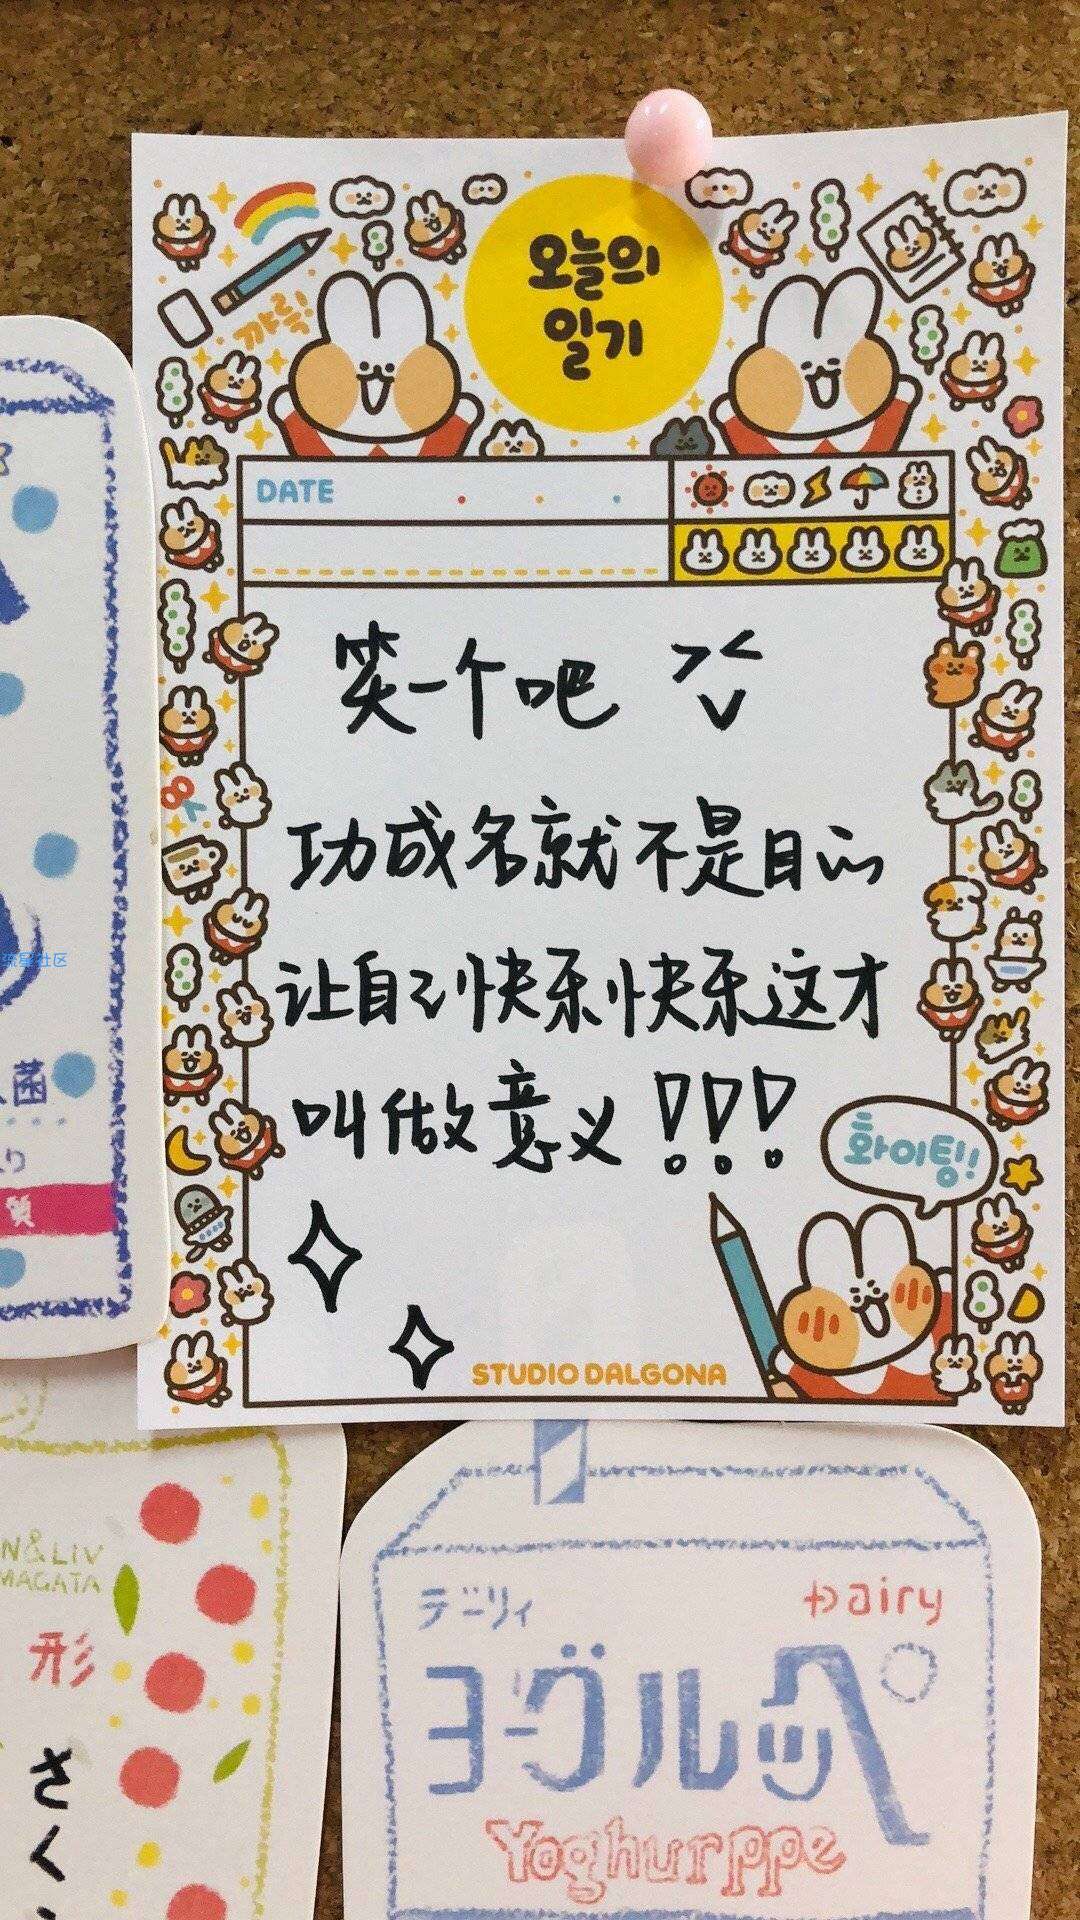 오늘의
일기
까륵!
DATE
笑一个吧
功成名就不是目的
让自己快乐快乐这才
叫做意义!!!
화이팅!!
STUDIO DALGONA
流星社区
菌
N&LIV
MAGATA
形
さく
デーリィ
Dairy
ヨーグルッペ
Yoghurppe